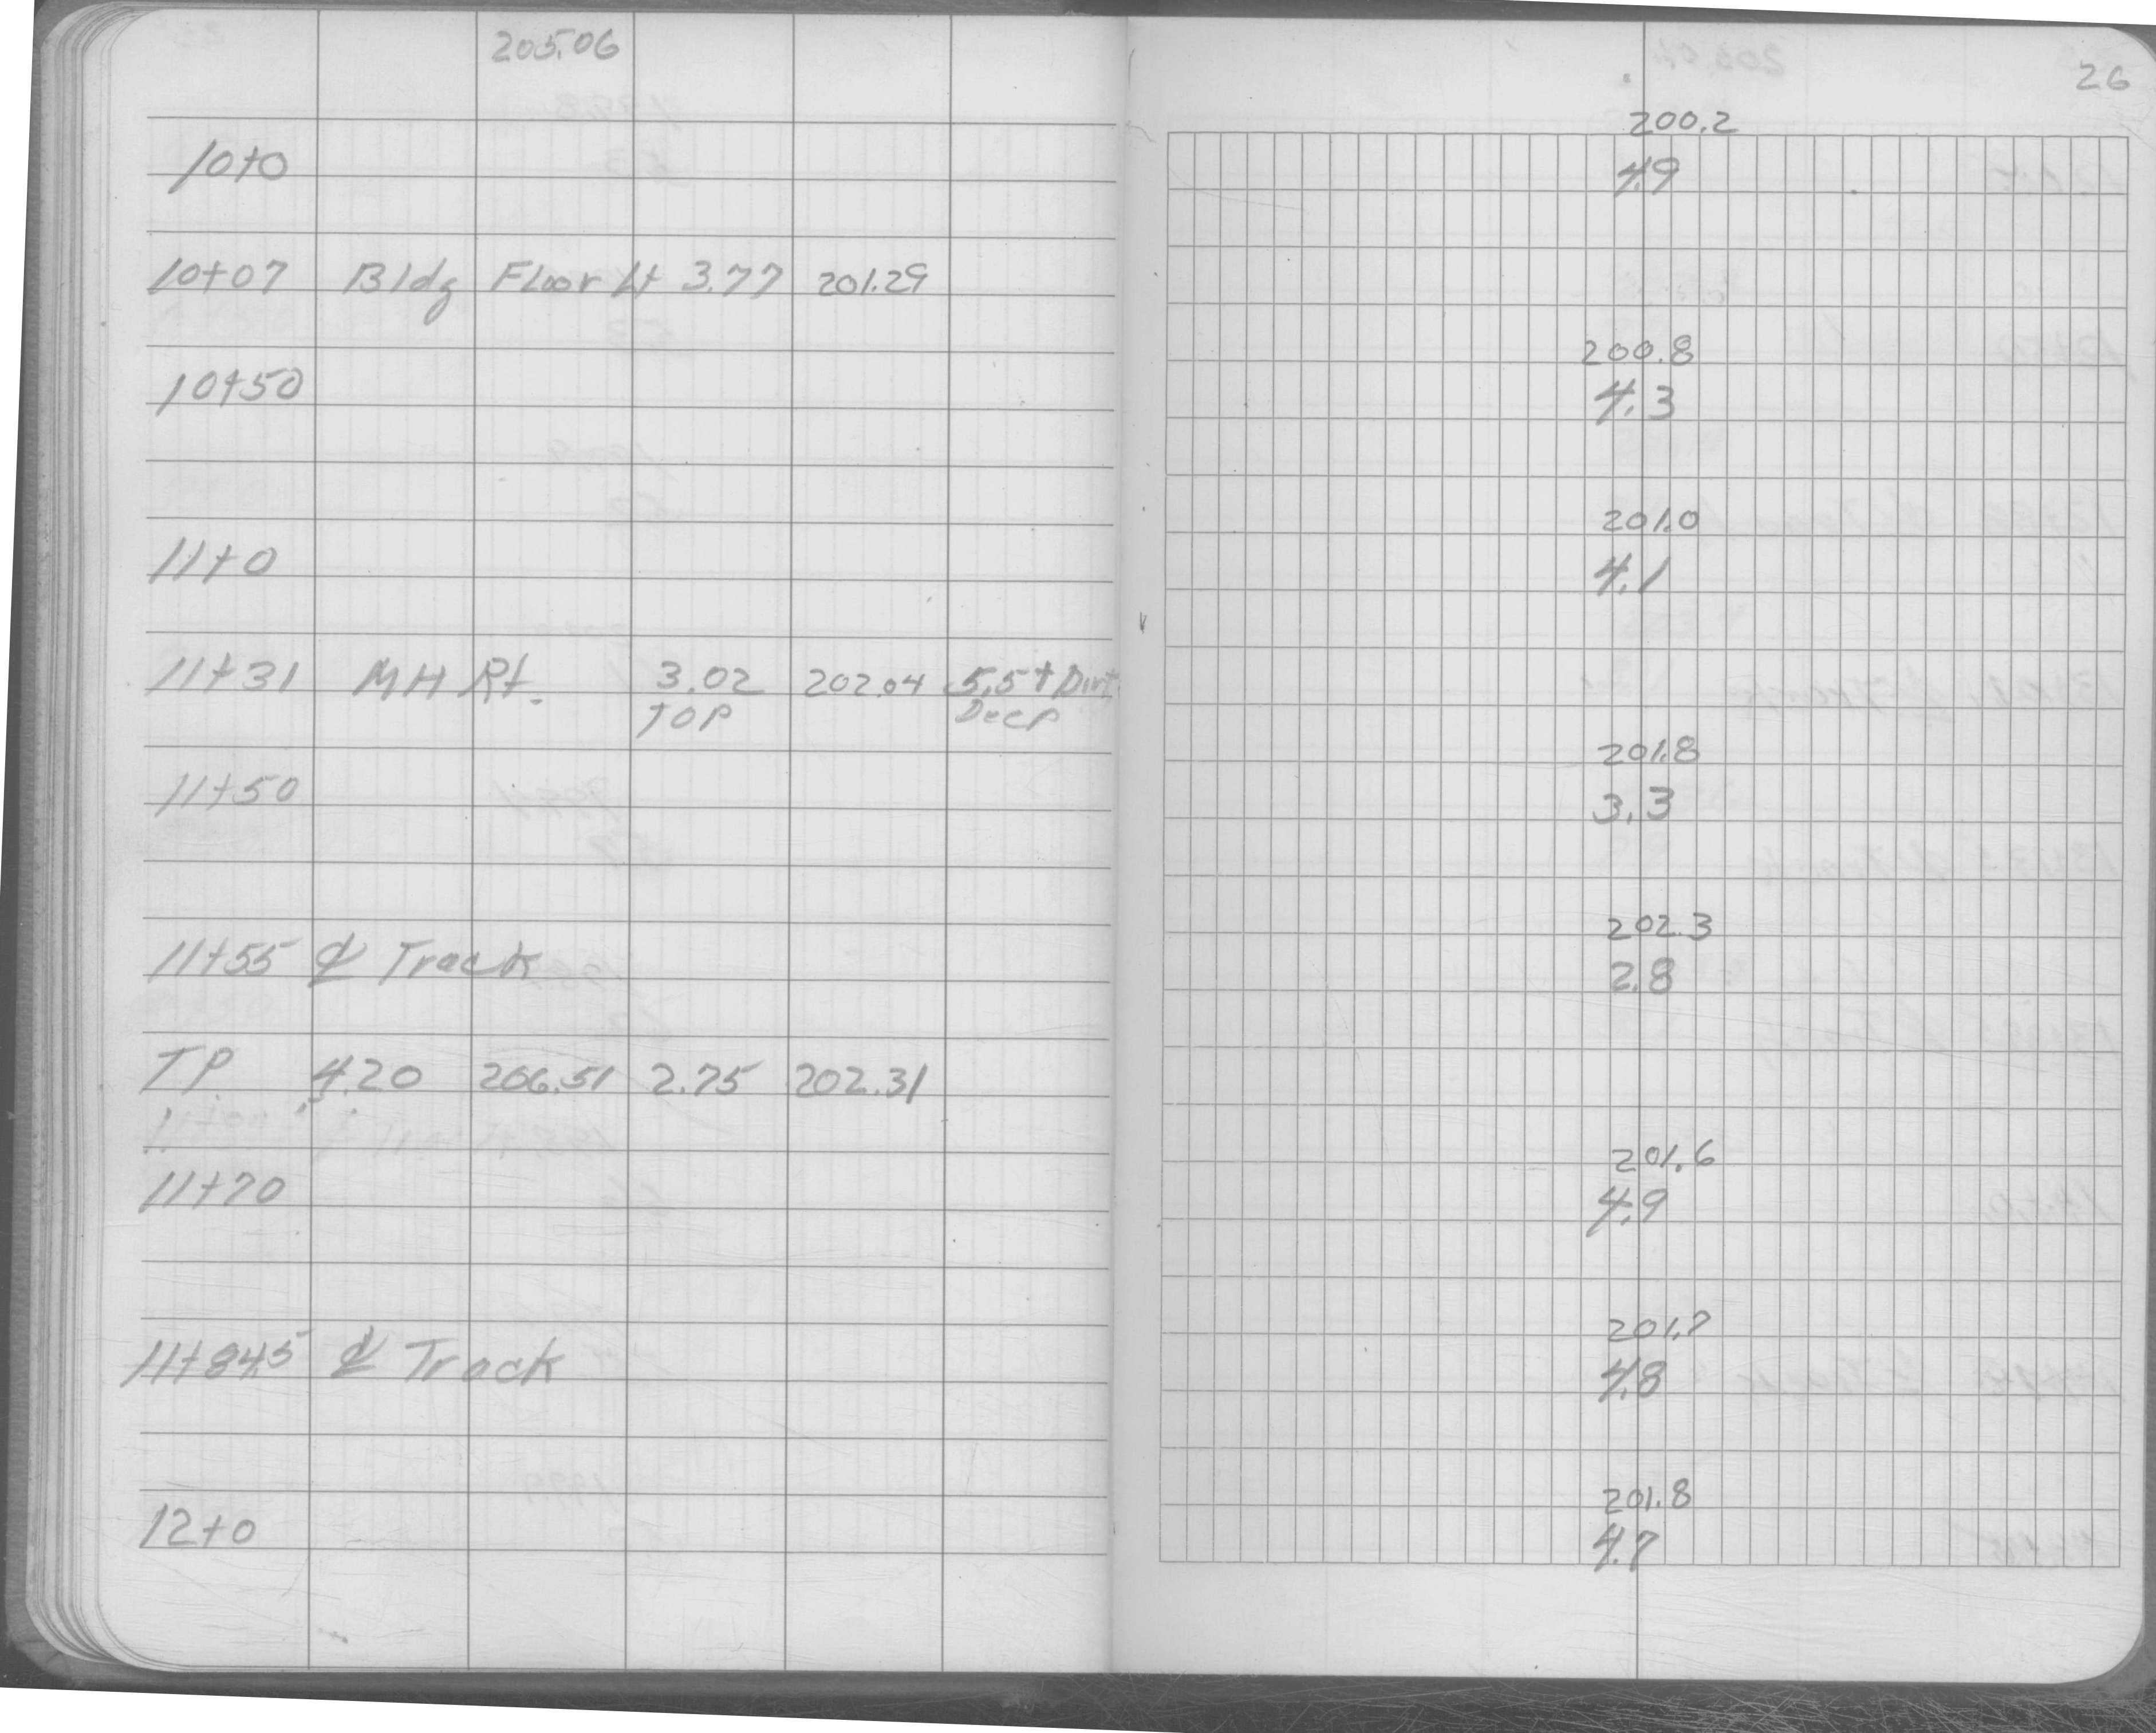 205.06
26
200.2
10+0 4.9
10+07 Bldg Floor Lt 3.77 201.29
200.8
10+50 4.3
201.0
11+0 4.1
11+31 MH Rt. 3.02 202.04 5.5+Dirt
TOP Deep
201.8
11+50 3.3
202.3
11+55 ℄ Track 2.8
TP 4.20 206.51 2.75 202.31
201.6
11+70 4.9
201.7
11+84.5 ℄ Track 4.8
201.8
12+0 4.7